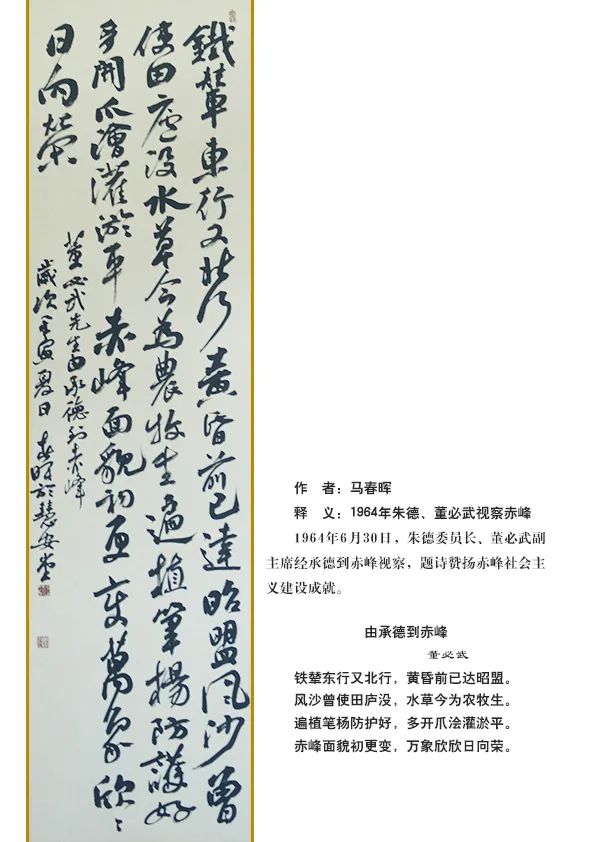 鐵輦東行又北行黄昏前已達昭盟風沙曾
使田廬没水草今為農牧生遍植筆楊防護好
多開爪澮灌淤平赤峰面貌初更变萬象欣〻
日向荣
董必武先生由承德到赤峰
歲次壬寅夏日春晖於慧安堂
作 者：马春晖
释 义：1964年朱德、董必武视察赤峰
1964年6月30日，朱德委员长、董必武副
主席经承德到赤峰视察，题诗赞扬赤峰社会主
义建设成就。
由承德到赤峰
董必武
铁辇东行又北行，黄昏前已达昭盟。
风沙曾使田庐没，水草今为农牧生。
遍植笔杨防护好，多开爪浍灌淤平。
赤峰面貌初更变，万象欣欣日向荣。